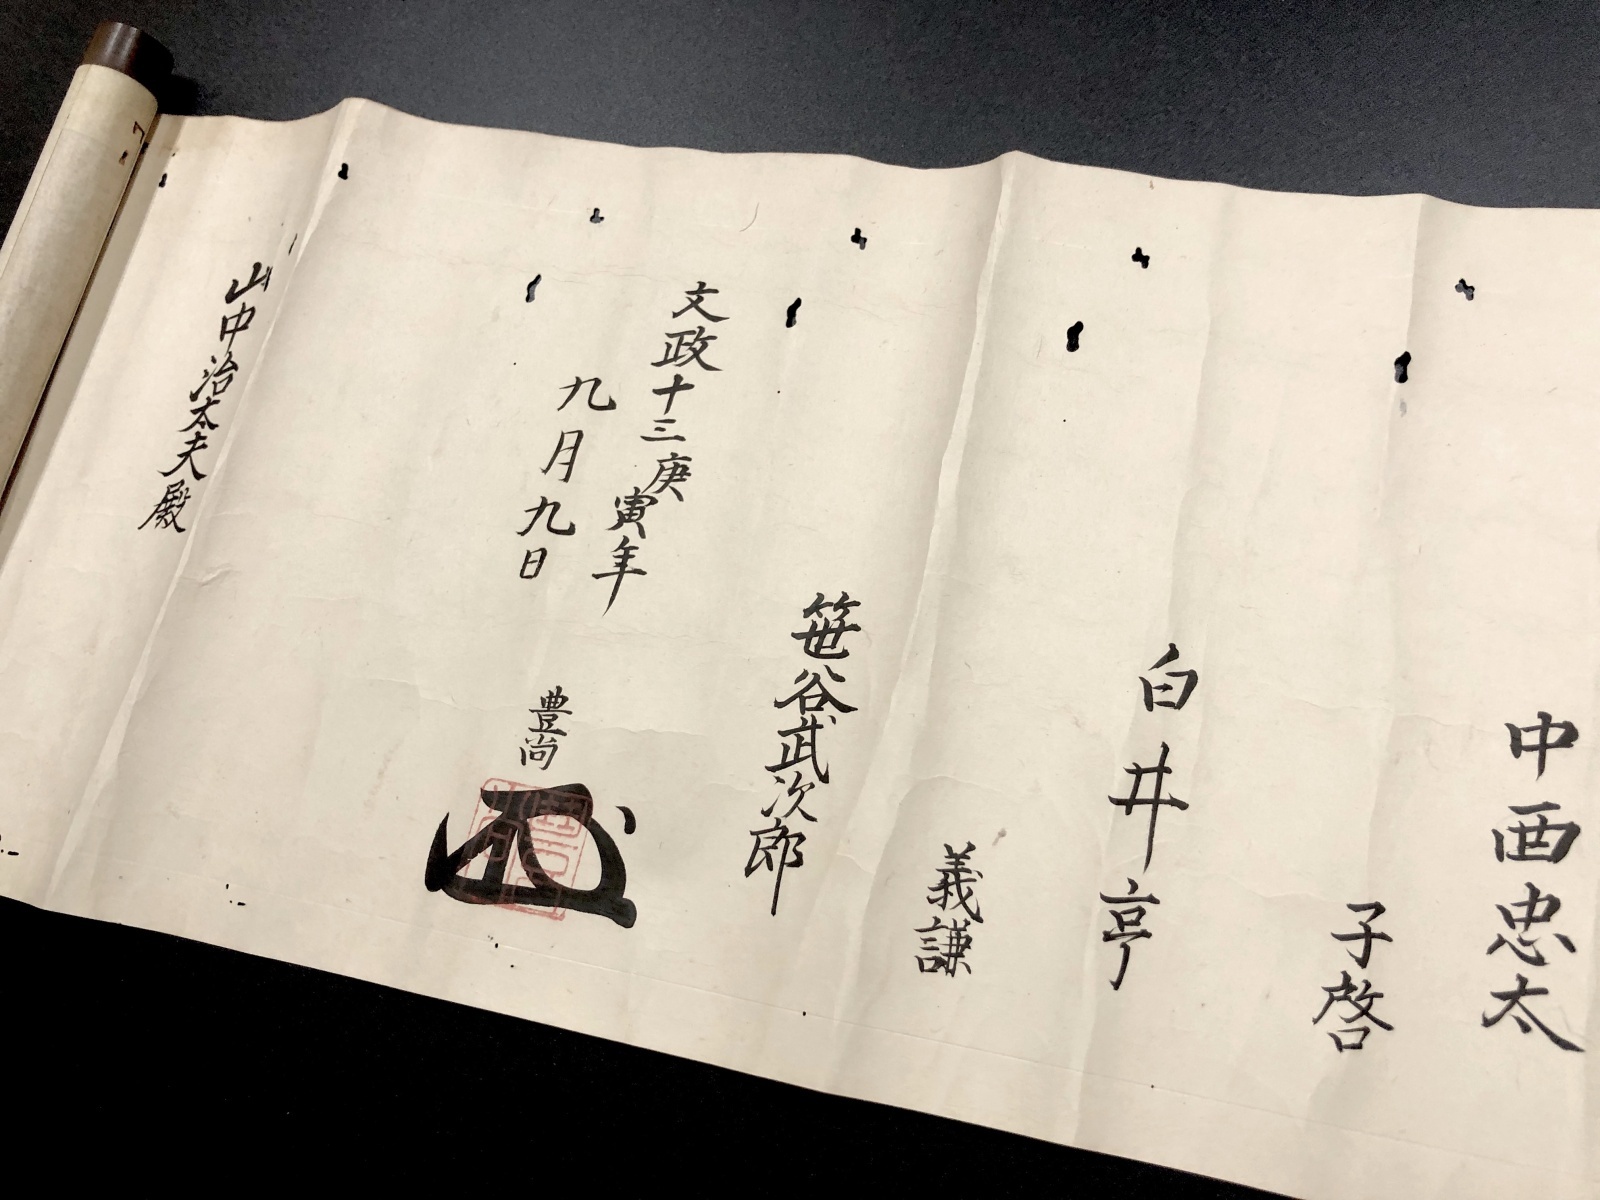 中西忠太
子啓
白井亨
義謙
笹谷武次郎
文政十三庚寅年
九月九日
豊尚
山中治太夫殿